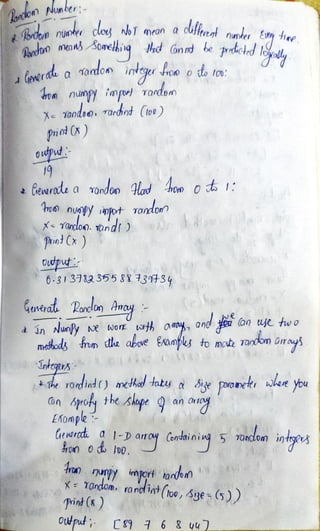 Random Number:-
* Random number does NOT mean a different number Every time.
Random means Something that Cannot be predicted logically
* Generate a random integer from 0 to 100:
from numpy import random
X = random.randint (100)
print (x)
output:-
19
* Generate a random float from 0 to 1:
from numpy import random
X = random.rand( )
print (x)
output:-
Generate Random Array :-
* In NumPy we work with arrays, and we can use two
methods from the above Examples to make random arrays
Integers:-
* The randint() method takes a Size parameter where you
Can specify the shape of an array
Example:-
Generate a 1-D array Containing 5 random integers
from 0 to 100.
from numpy import random
X = random.randint(100, Size=(5))
print (x)
output:- [89 7 6 8 44]